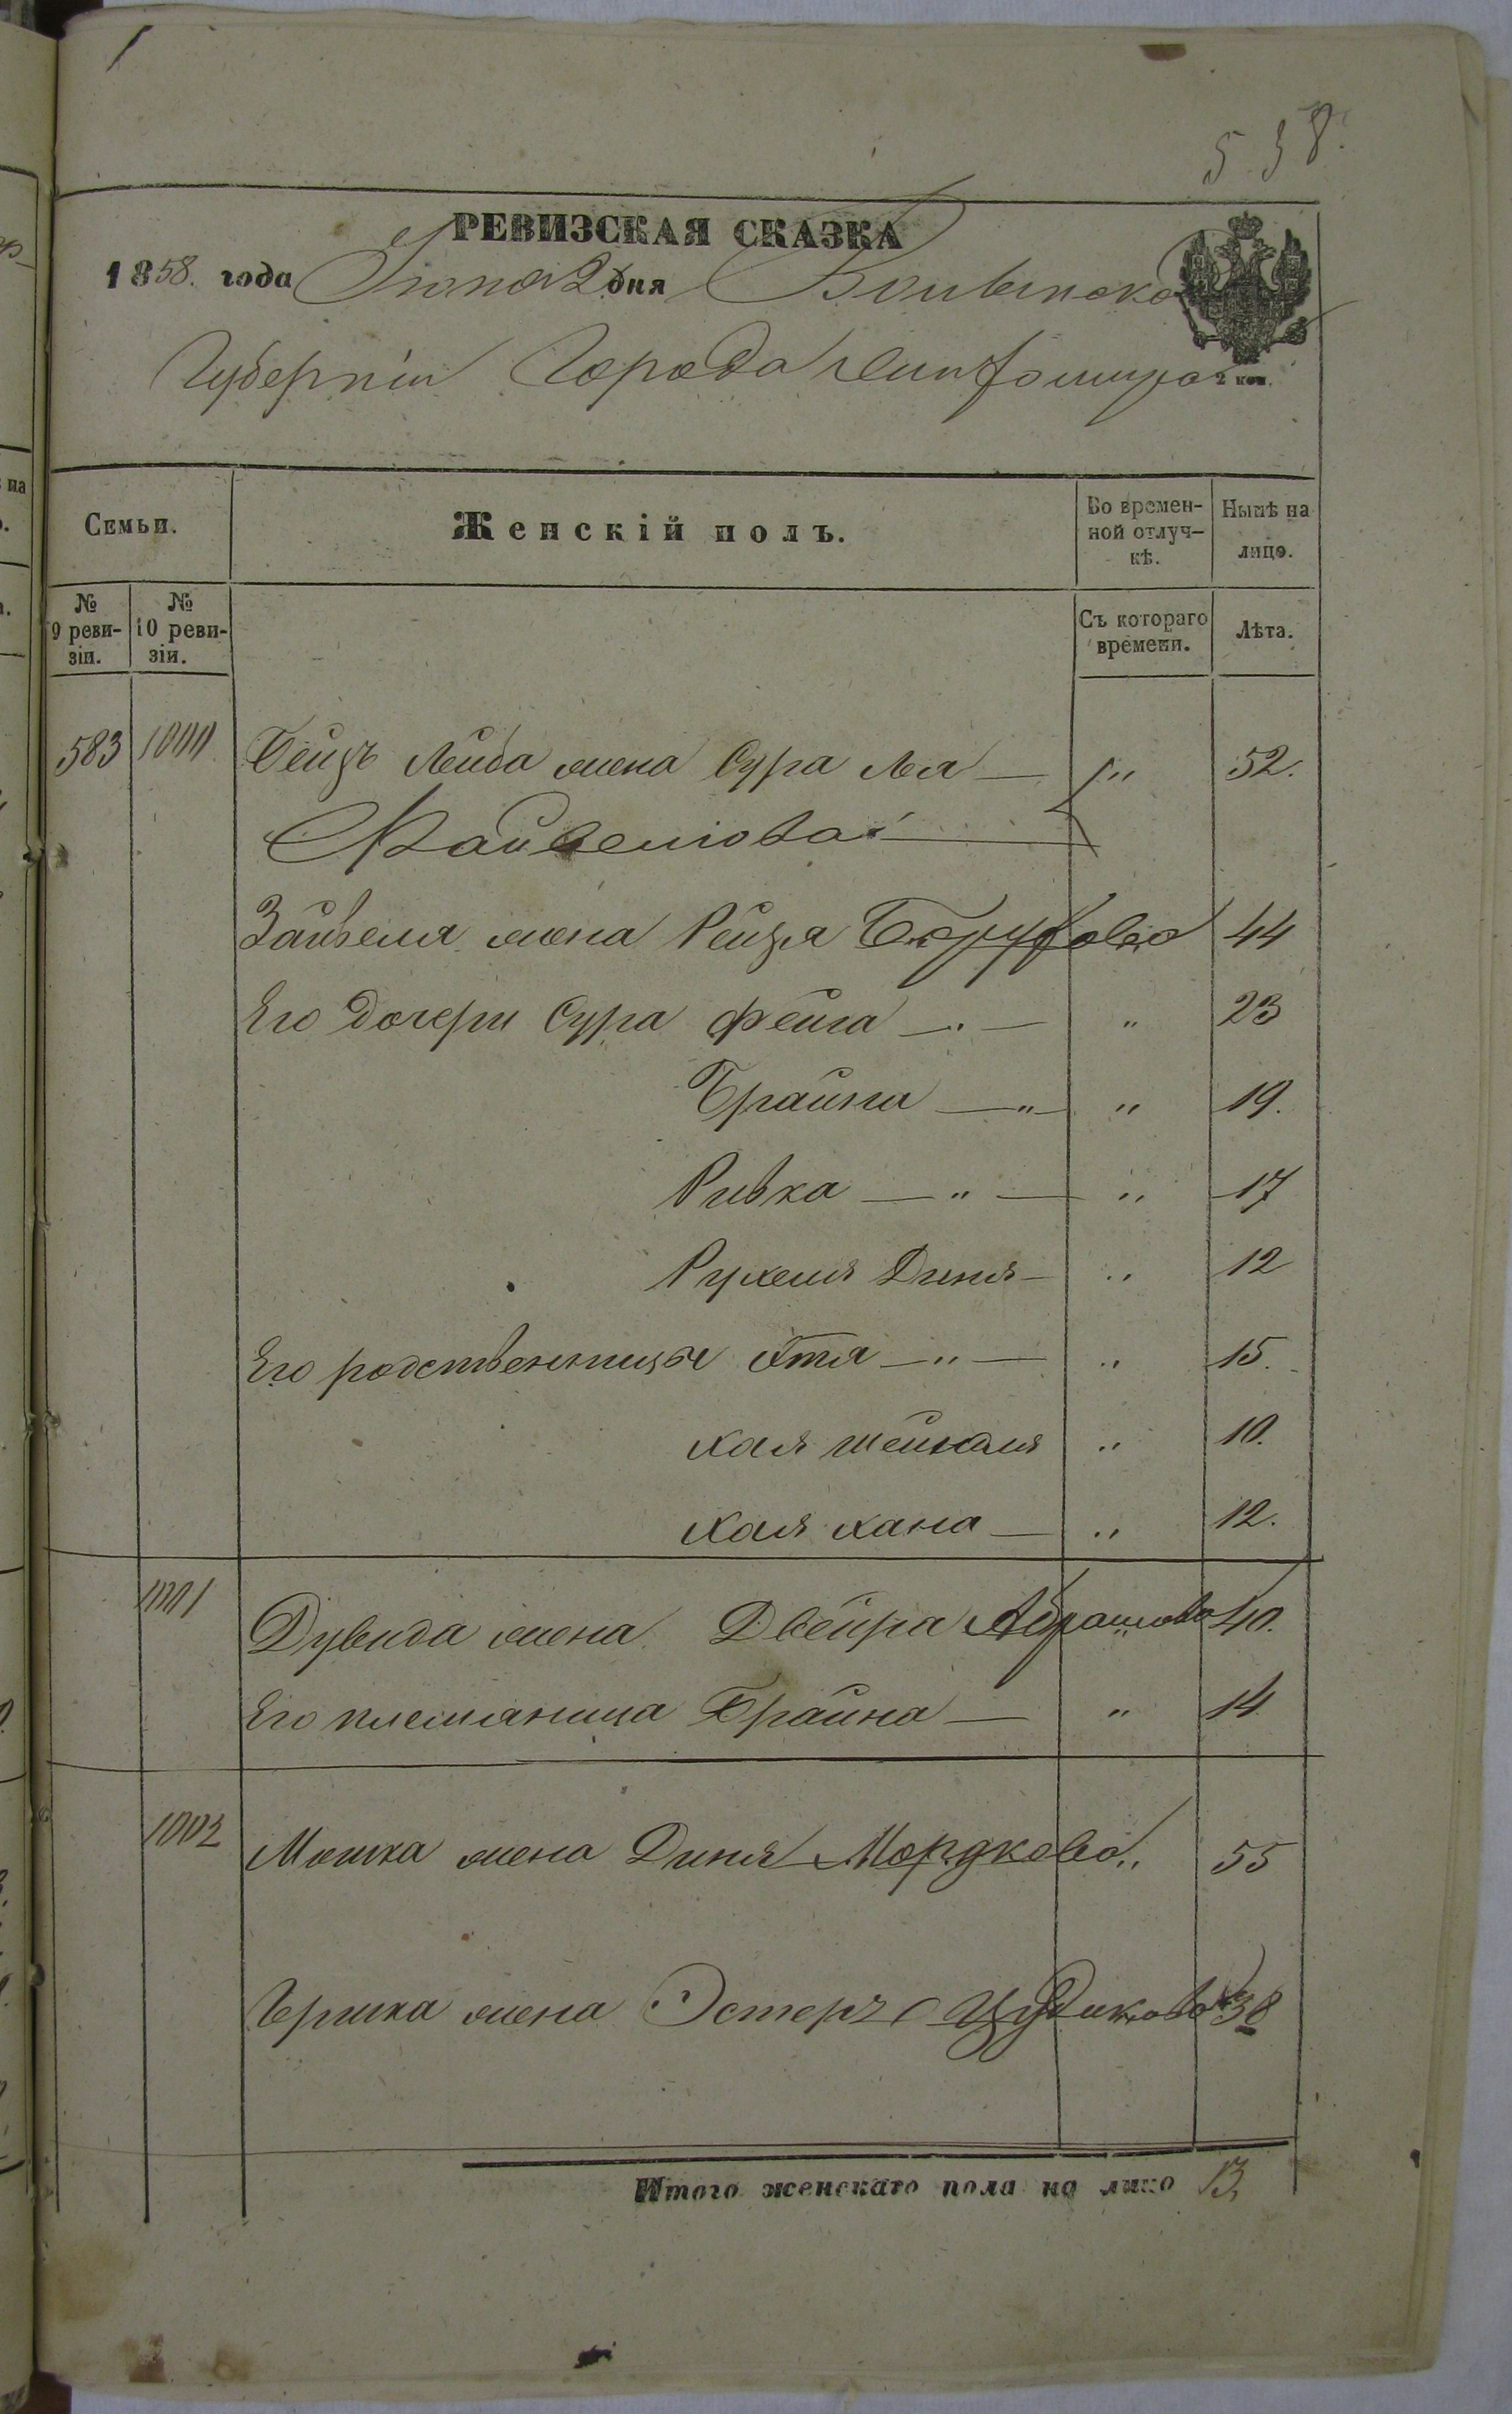 538.
РЕВИЗСКАЯ СКАЗКА
1858. года Іюня 2 дня Волынской
Губерніи Города Житомира
2 коп.
Семьи.
Женскій полъ.
Во времен-
ной отлуч-
кѣ.
Нынѣ на
лицо.
№
9 реви-
зіи.
№
10 реви-
зіи.
Съ котораго
времени.
Лѣта.
583 1000 Лейба жена Сура Лея — " 52.
Зайвеля жена Рейзя Боруховa 44
Его дочери Сура Фейга — " — " 23
Брайна — " — " 19.
Ривка — " — " 17
Рухеля Диня — " 12
Его родственницы Этя — " — " 15.
Хая " 10.
Хая Хана — " 12.
1001 Дувида жена Двейра Абрамова 40.
Его племяница Брайна — " 14
1002 Мошка жена Диня Мордкова " 55
Гершка жена Эстеръ 38
Итого женскаго пола на лицо 13